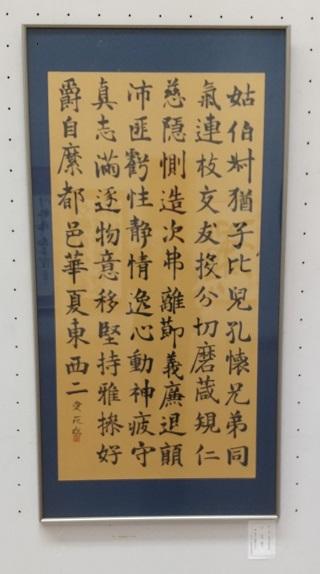 姑伯叔猶子比兒孔懷兄弟同
氣連枝交友投分切磨箴規仁
慈隱惻造次弗離節義廉退顛
沛匪虧性靜情逸心動神疲守
真志滿逐物意移堅持雅操好
爵自縻都邑華夏東西二